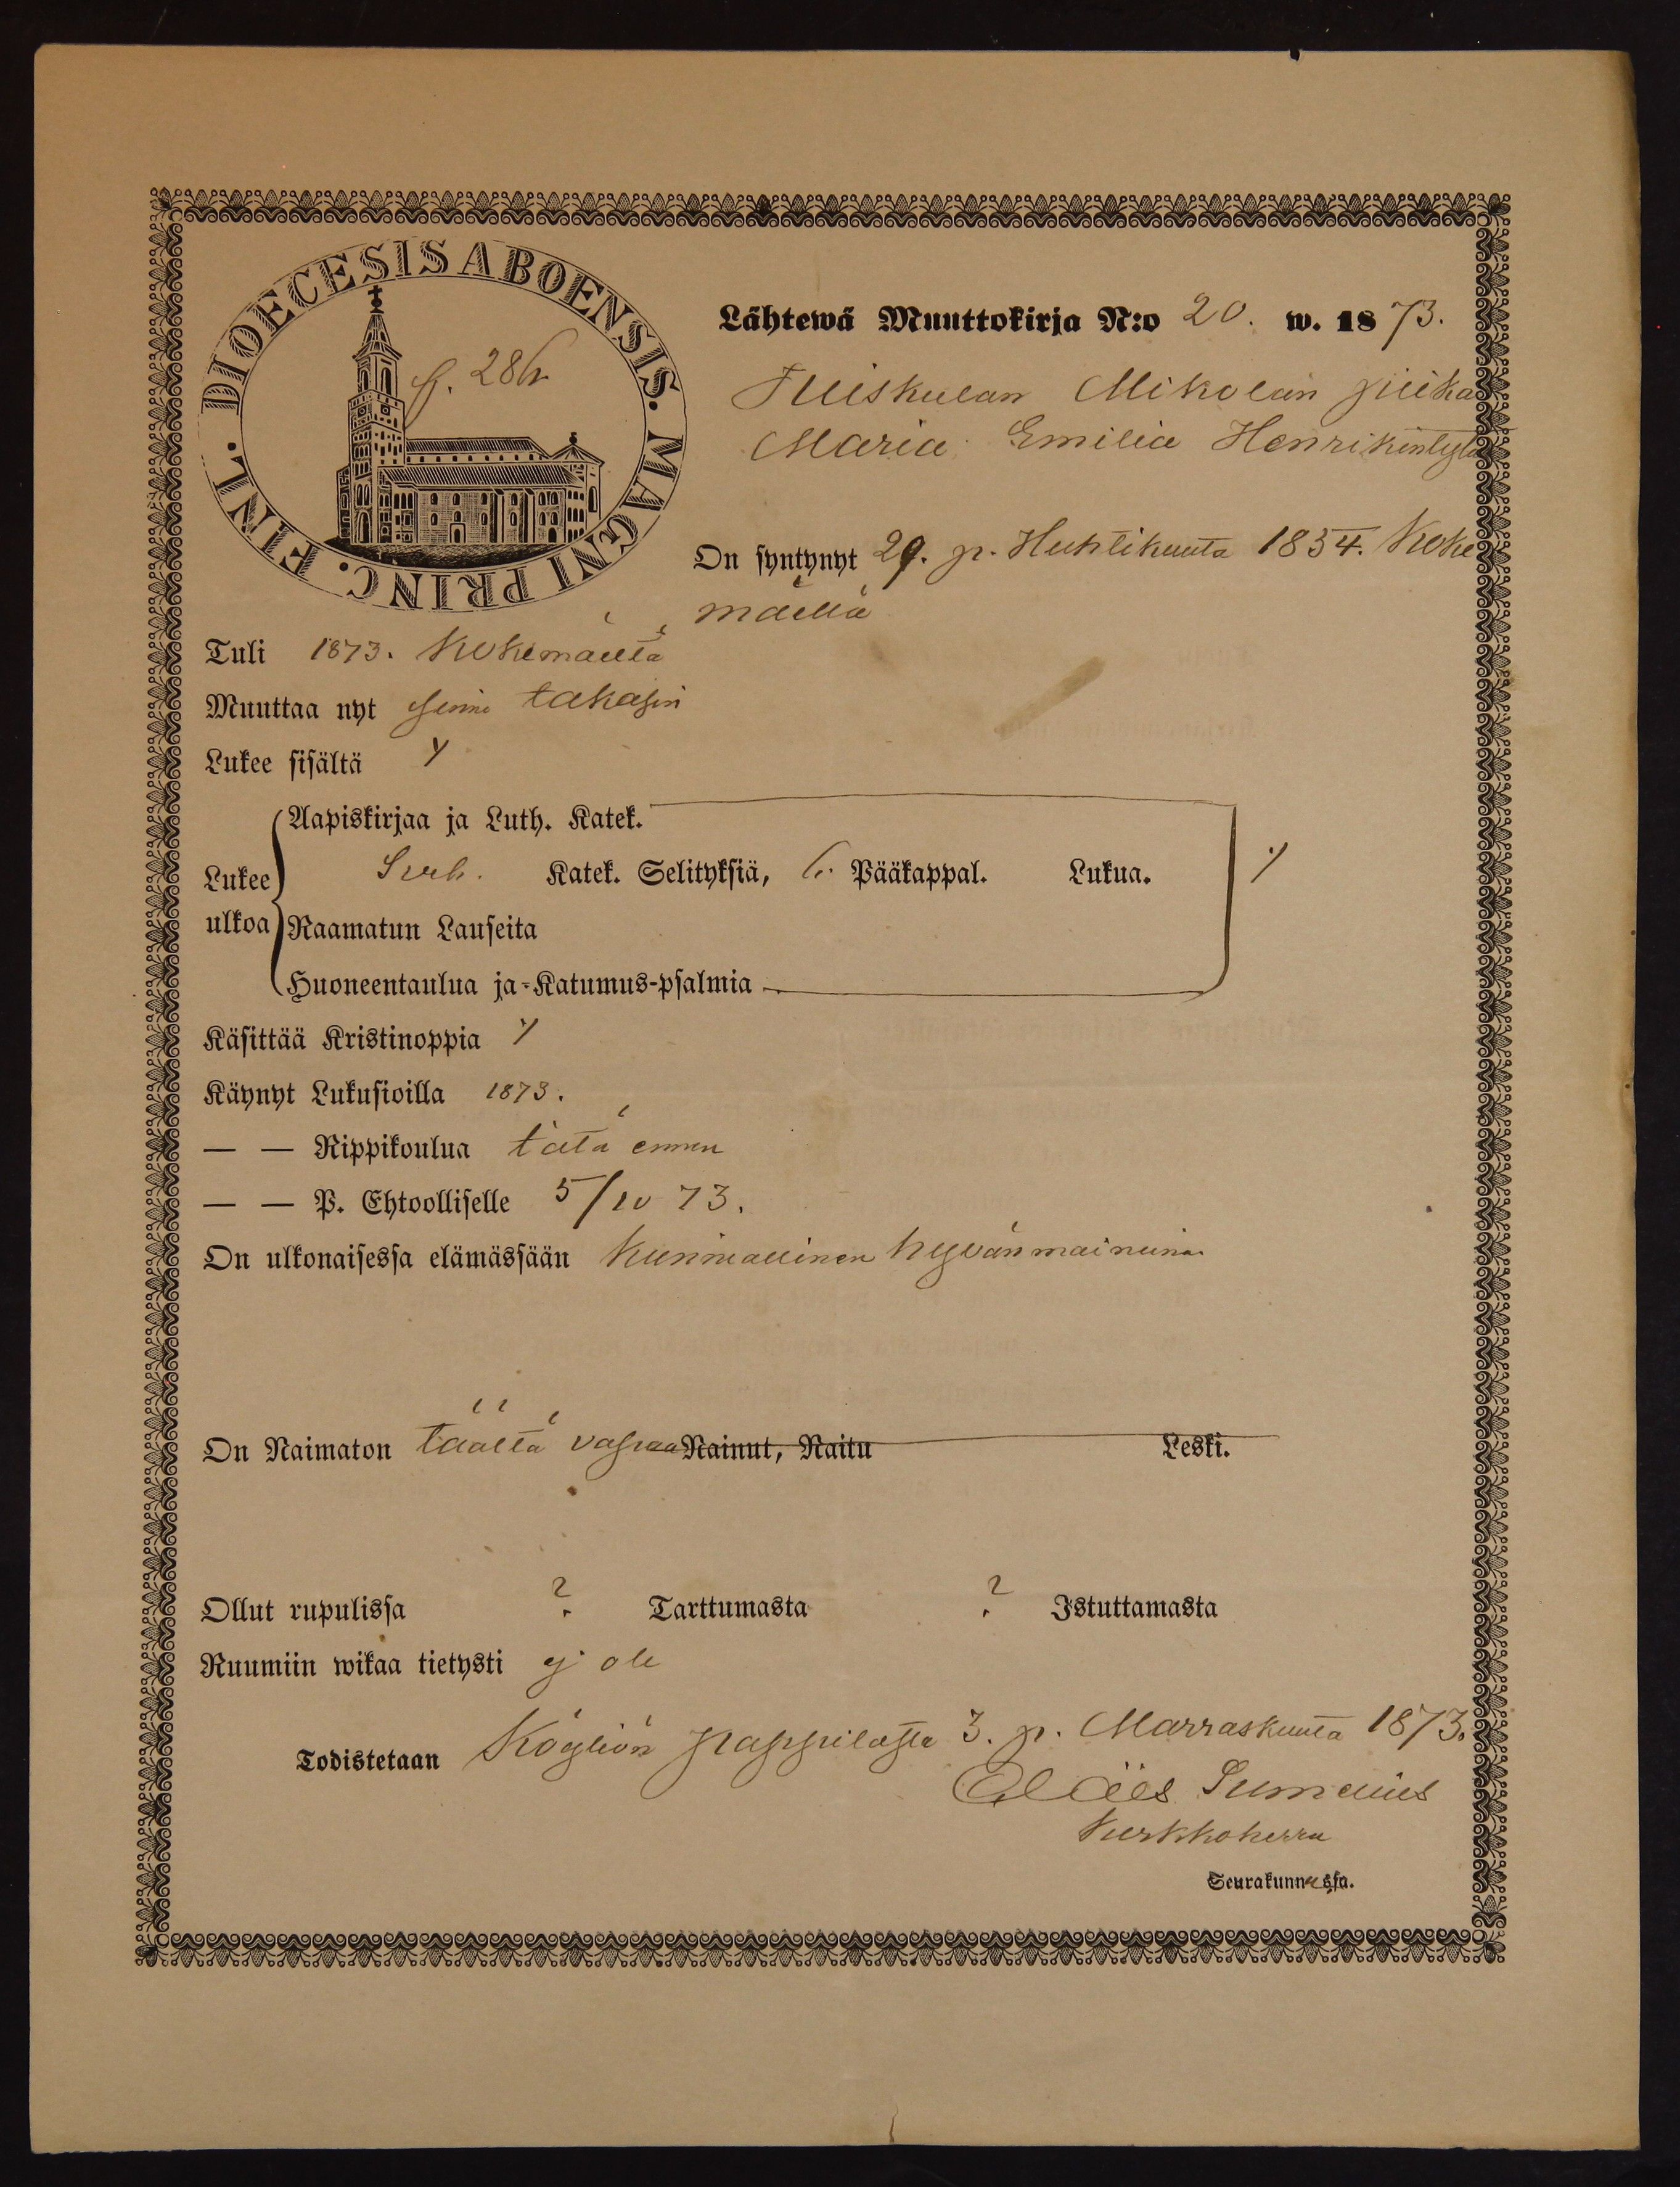 DIOECESIS ABOENSIS. MAGNI PRINC. FINL.
f. 286
Lähtewä Muuttokirja N:o 20. w. 1873.
Tuiskulan Mikolan piika
Maria Emilia Henrikintytär
On syntynyt 29. p. Huhtikuuta 1854. Koke
mäellä
Tuli 1873. Kokemäeltä
Muuttaa nyt sinne takasin
Lukee sisältä
Aapiskirjaa ja Luth. Katek.
Lukee Katek. Selityksiä, Pääkappal. Lukua.
ulkoa Raamatun Lauseita
Huoneentaulua ja Katumus-psalmia
Käsittää Kristinoppia
Käynyt Lukusioilla 1873.
— — Rippikoulua tätä ennen
— — P. Ehtoolliselle 5/10 73.
On ulkonaisessa elämässään kunniallinen hyvänmainuinen
On Naimaton täältä vapaa Nainut, Naitu Leski.
Ollut rupulissa ? Tarttumasta ? Istuttamasta
Ruumiin wikaa tietysti ej ole
Todistetaan Köyliön pappilasta 3. p. Marraskuuta 1873.
Kirkkoherra
Seurakunnassa.